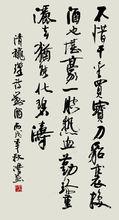 不惜千金買寶刀貂裘換
酒也堪豪一腔熱血勤珍重
灑去猶能化碧濤
清秋瑾詩對酒 丙戌年秋